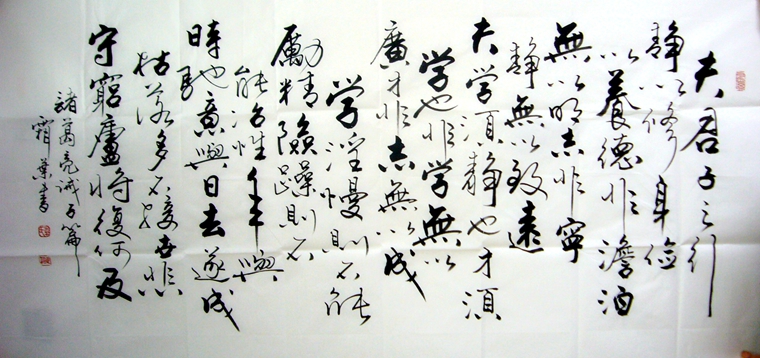 夫君子之行
静以修身俭
以養德非澹泊
無以明志非寧
静無以致遠
夫学須静也才須
学也非学無以
廣才非志無以成
学淫慢則不能
勵精險躁則不
能冶性年與
時馳意與日去遂成
枯落多不接世悲
守窮廬將復何及
諸葛亮诫子篇
霜葉書